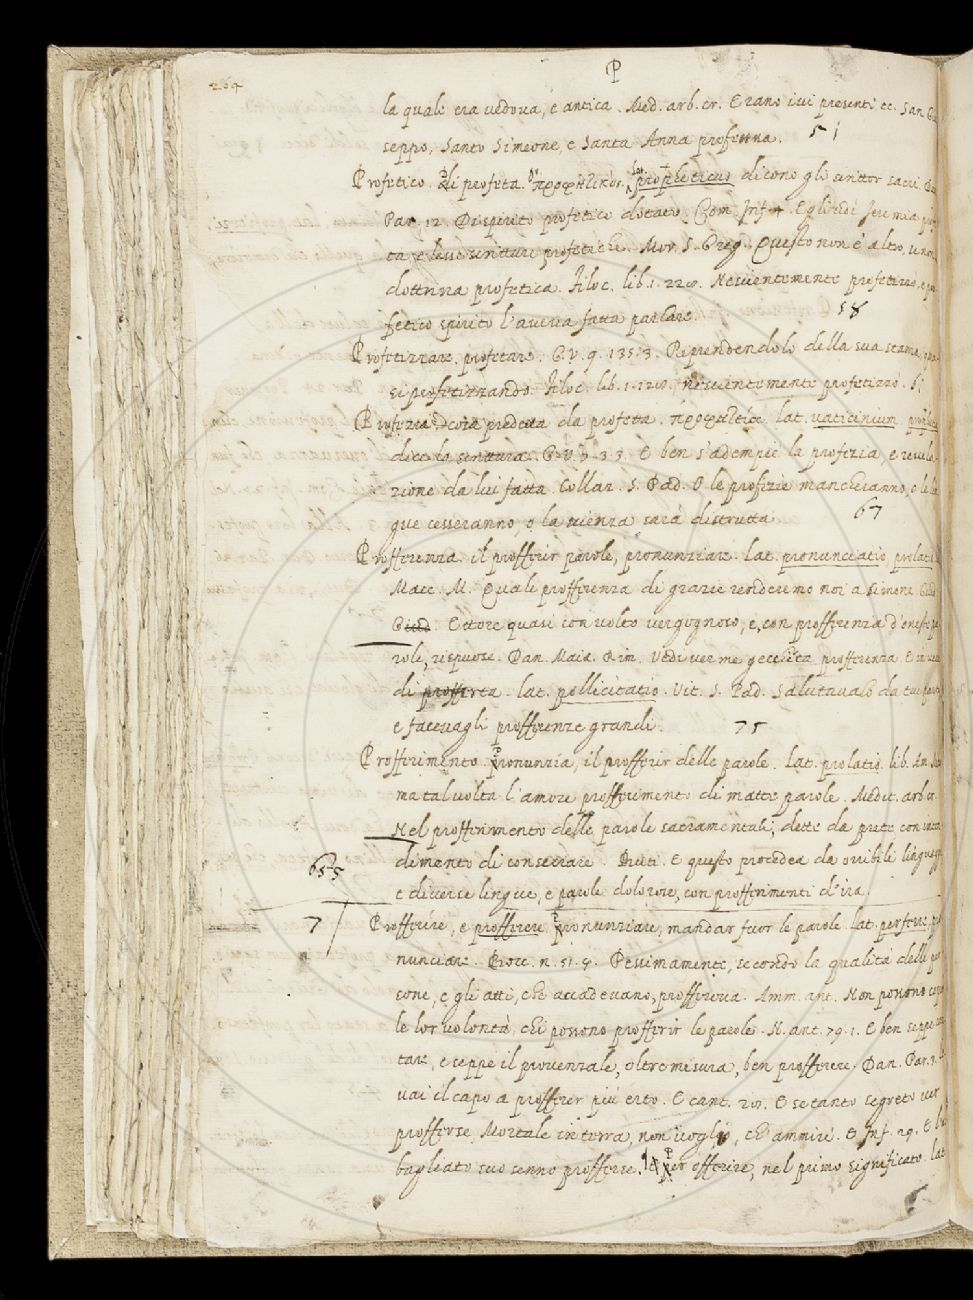 264
P
la quale era vedova, e antica. Med. arb. cr. Erano ivi presenti ec. San Giu
seppo, Santo Simeone, e Santa Anna profetessa. 51
Profetico. Di profeta. Gr. προφητικὸς. Lat. propheticus dicono gli scrittor sacri. Dan.
Par. 12. Di spirito profetico dotato. Com. Inf. 4. Egli udì Jeremia
ta, e lesse scritture profetiche. Mor. S. Greg. Questo non è altro, se non
dottrina profetica. Filoc. lib. 1. 220. Nescientemente profetizzò, e
fetico spirito l'aveva fatta parlare. 58
Profetizzare. profetare. G. V. 9. 135. 3. Riprendendolo della sua stanza,
si profetizzando. Filoc. lib. 1. 120. nescientemente profetizzò. 61
Profezia. cosa predetta da profeta. προφητεία. lat. vaticinium.
dice la scrittura. G. V. 9. 3. 3. E ben s'adempiè la profezia e revela-
zione da lui fatta. Collaz. S. Pad. O le profezie mancheranno, o le lin
gue cesseranno, o la scienza sarà distrutta 67
Profferenza. il profferir parole, pronunziare. Lat. pronunciatio, prolatio
Macc. M. Quale profferenza di grazie renderemo noi a Simone.
Guid. Ettore quasi con volto vergognoso, e, con profferenza d'oneste pa
role, rispuose. Dan. Maia. Rim. Vedi ver me gecchita profferenza.
di profferta. lat. pollicitatio. Vit. S. Pad. Salutavalo da
e facevagli profferenze grandi. 75
Profferimento. Pronunzia, il profferir delle parole. Lat. prolatio. lib. Am.
ma talvolta l'amore profferimento di matte parole. Medit. arb. cr.
Nel profferimento delle parole sacramentali, dette da prete con inten
dimento di consecrare. Buti. E questo procedea da orribili linguaggi
e diverse lingue, e parole dolorose, con profferimenti d'ira.
655
7
Profferire, e profferere. Pronunziare, mandar fuor le parole. Lat. perferre, pro
nunciare. Bocc. n. 51. 4. Pessimamente, secondo la qualità delle per
sone, e gli atti, che accadevano, profferiva. Amm. ant. Non possono
le lor volontà, chi possono profferir le parole. N. ant. 79. 1. E ben seppe
tare, e seppe il provenzale, oltre misura, ben profferere. Dan. Par.
vai il capo a profferer più erto. E cant. 20. E se tanto segreto ver
profferse, Mortale in terra, non voglio, ch' ammiri. E Inf. 29. E l'ab
bagliato suo senno profferse. Per offerire, nel primo significato. lat.